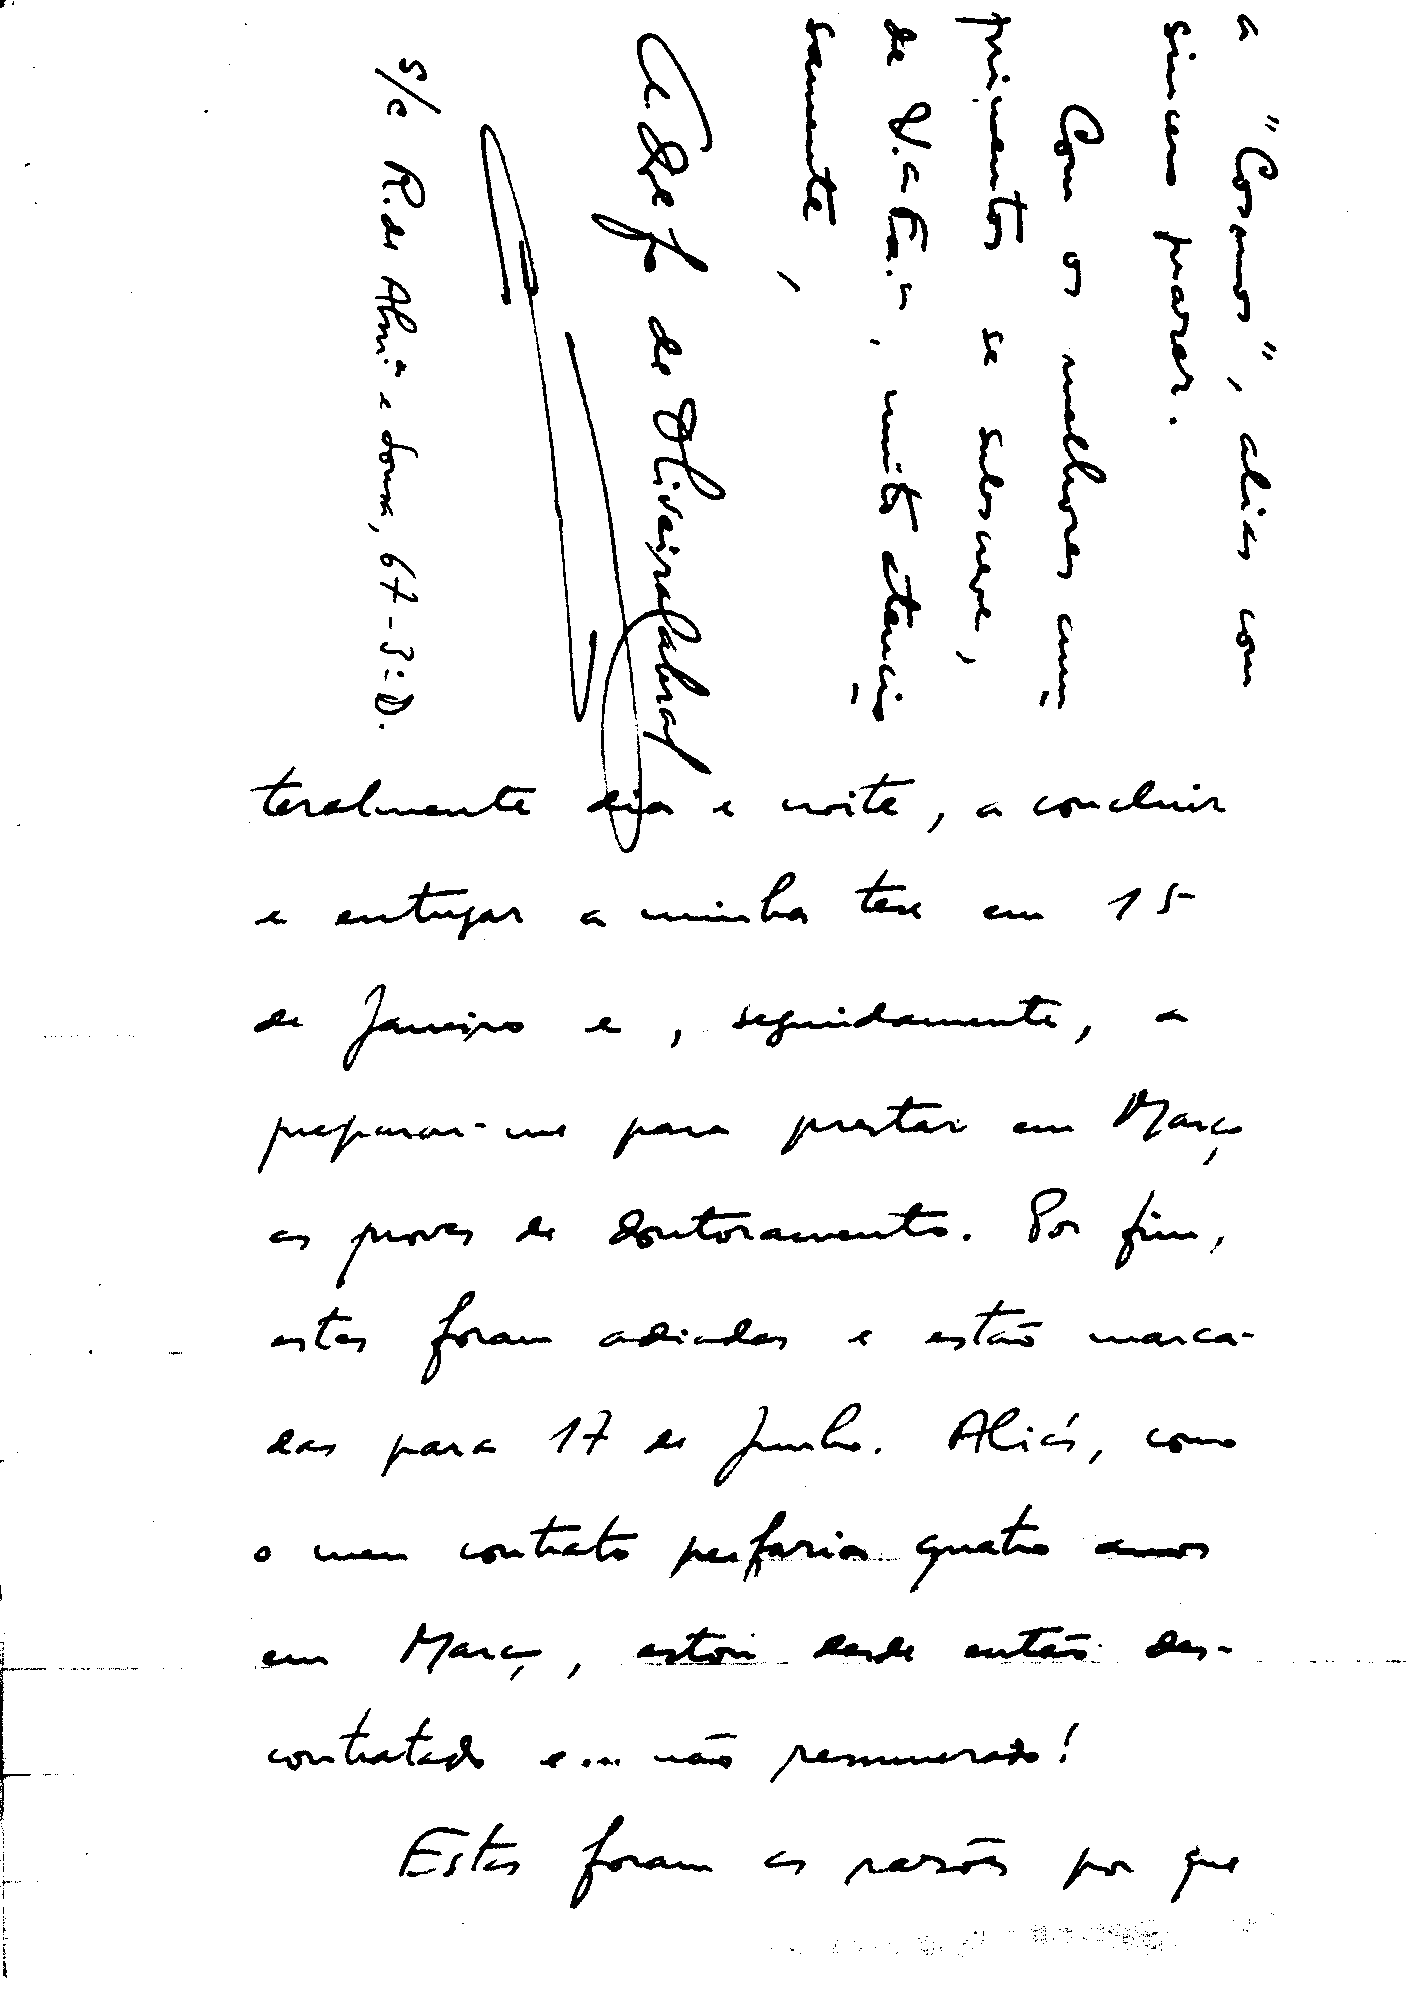 teralmente dia e noite, a concluir
e entregar a minha tese em 15
de Janeiro e, seguidamente, a
preparar-me para prestar em Março
as provas de doutoramento. Por fim,
estas foram adiadas e estão marca-
das para 17 de Junho. Aliás, como
o meu contrato perfaria quatro anos
em Março, estou desde então des-
contratado e... não remunerado!
Estas foram as razões por que
a "Cosmos", aliás com
sincero pesar.
Com os melhores cum-
primentos se subscreve,
de V. a Ex.a, muito atencio-
samente,
de Oliveira Cabral
s/c R. de Alm.a e Sousa, 67-3.º D.